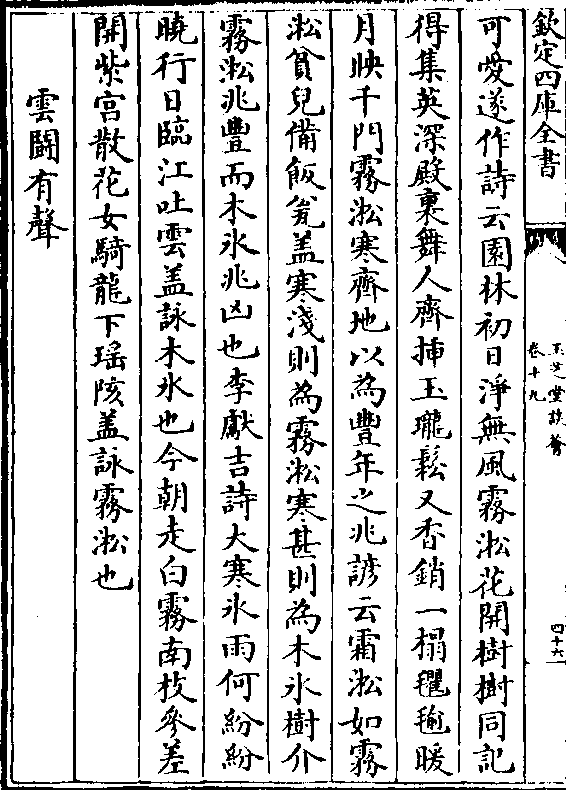 欽定四庫全書
玉芝堂談薈
卷十九
四十六
可愛遂作詩云園林初日淨無風霧淞花開樹樹同記
得集英深殿裏舞人齊揷玉瓏鬆又香銷一榻氍毹暖
月映千門霧淞寒齊地以為豐年之兆諺云霜淞如霧
淞貧兒備飯瓮盖寒淺則為霧淞寒甚則為木氷樹介
霧淞兆豐而木氷兆凶也李獻吉詩大寒氷雨何紛紛
曉行日臨江吐雲盖詠木氷也今朝走白霧南枝參差
開紫宫散花女騎龍下瑶陔盖詠霧淞也
雲鬭有聲